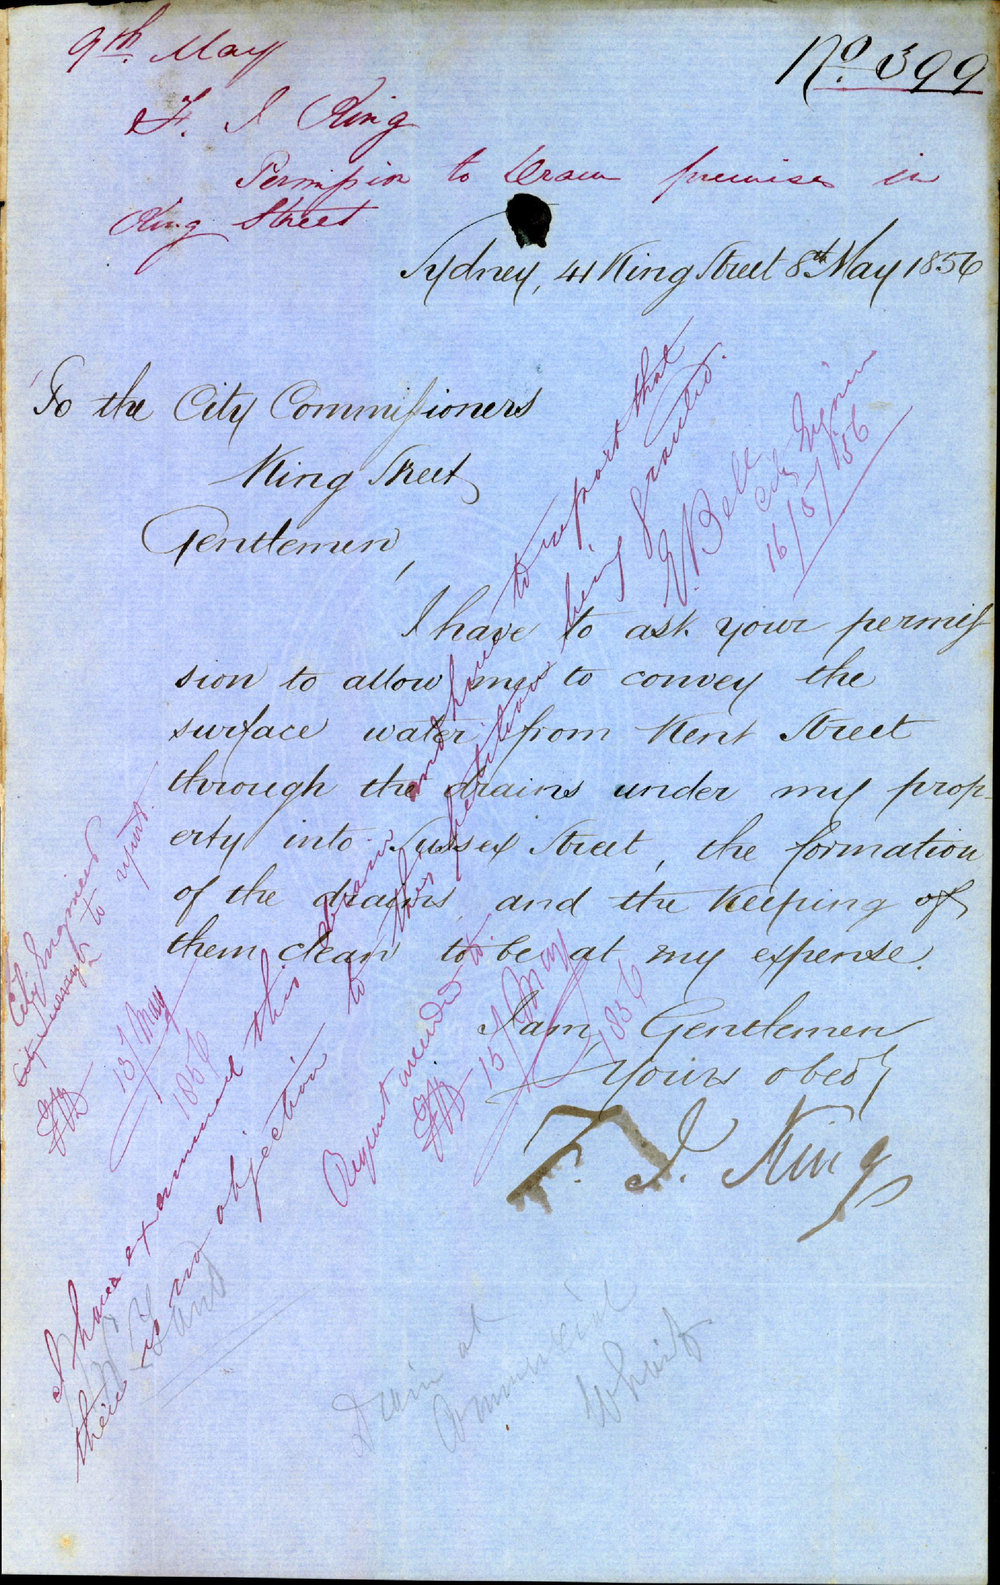 9th. May
No. 399
F. J King
Permission to drain premises in
King Street
Sydney, 41 King Street 8th May 1856
To the City Commissioners
King Street
Gentlemen,
I have to ask your permis
sion to allow me to convey the
surface water from Kent Street
through the drains under my prop-
erty into Sussex Street, the formation
of the drains, and the keeping of
them clean to be at my expense.
I am, Gentlemen
Yours obedt
F. J. King
City Engineer
to report.
13/May
1856
I have examined this drain and have to report that
there is no objection to this petition being granted.
E Bell
City Engineer
16/5/56
Request acceeded to.
15/May
1856
Drain at
Commercial
Wharf